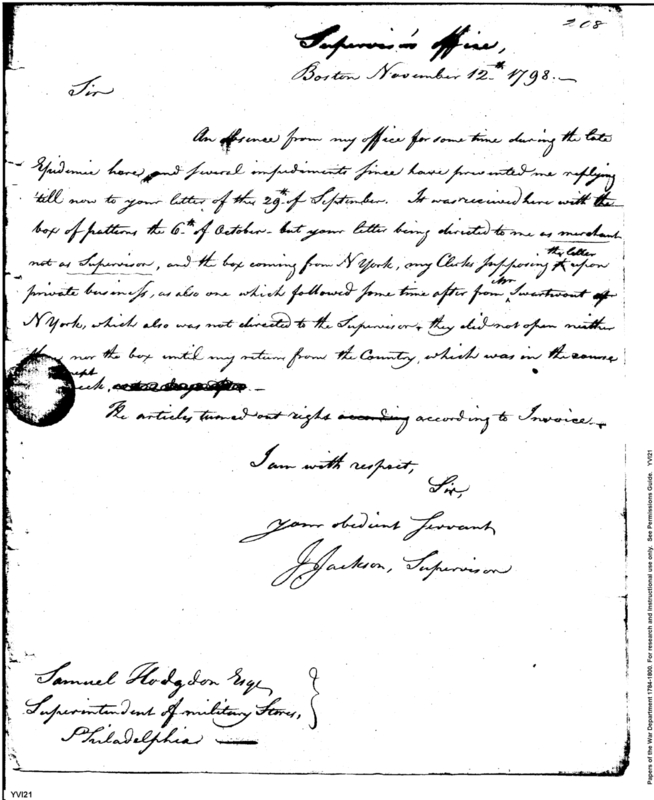 268
Supervisor's office,
Boston November 12th 1798.—
Sir
An absence from my office for some time during the late
Epidemic here, and several impediments since have prevented me replying
till now to your letter of the 29th of September. It was received here with the
box of patterns the 6th of October – but your letter being directed to me as merchant
not as Supervisor, and the box coming from N York, my Clerks supposing the letter upon
private business, as also one which followed some time after from Mr Swartwout of
N York, which also was not directed to the Supervisor, they did not open neither
nor the box until my return from the Country, which was in the course
—
The articles turned out right according according to Invoice.—
I am with respect,
Sir,
your obedient Servant
J Jackson, Supervisor
Samuel Hodgdon Esqr
Superintendent of military Stores,
Philadelphia —
YVI21
Papers of the War Department 1784-1800. For research and instructional use only. See Permissions Guide. YVI21